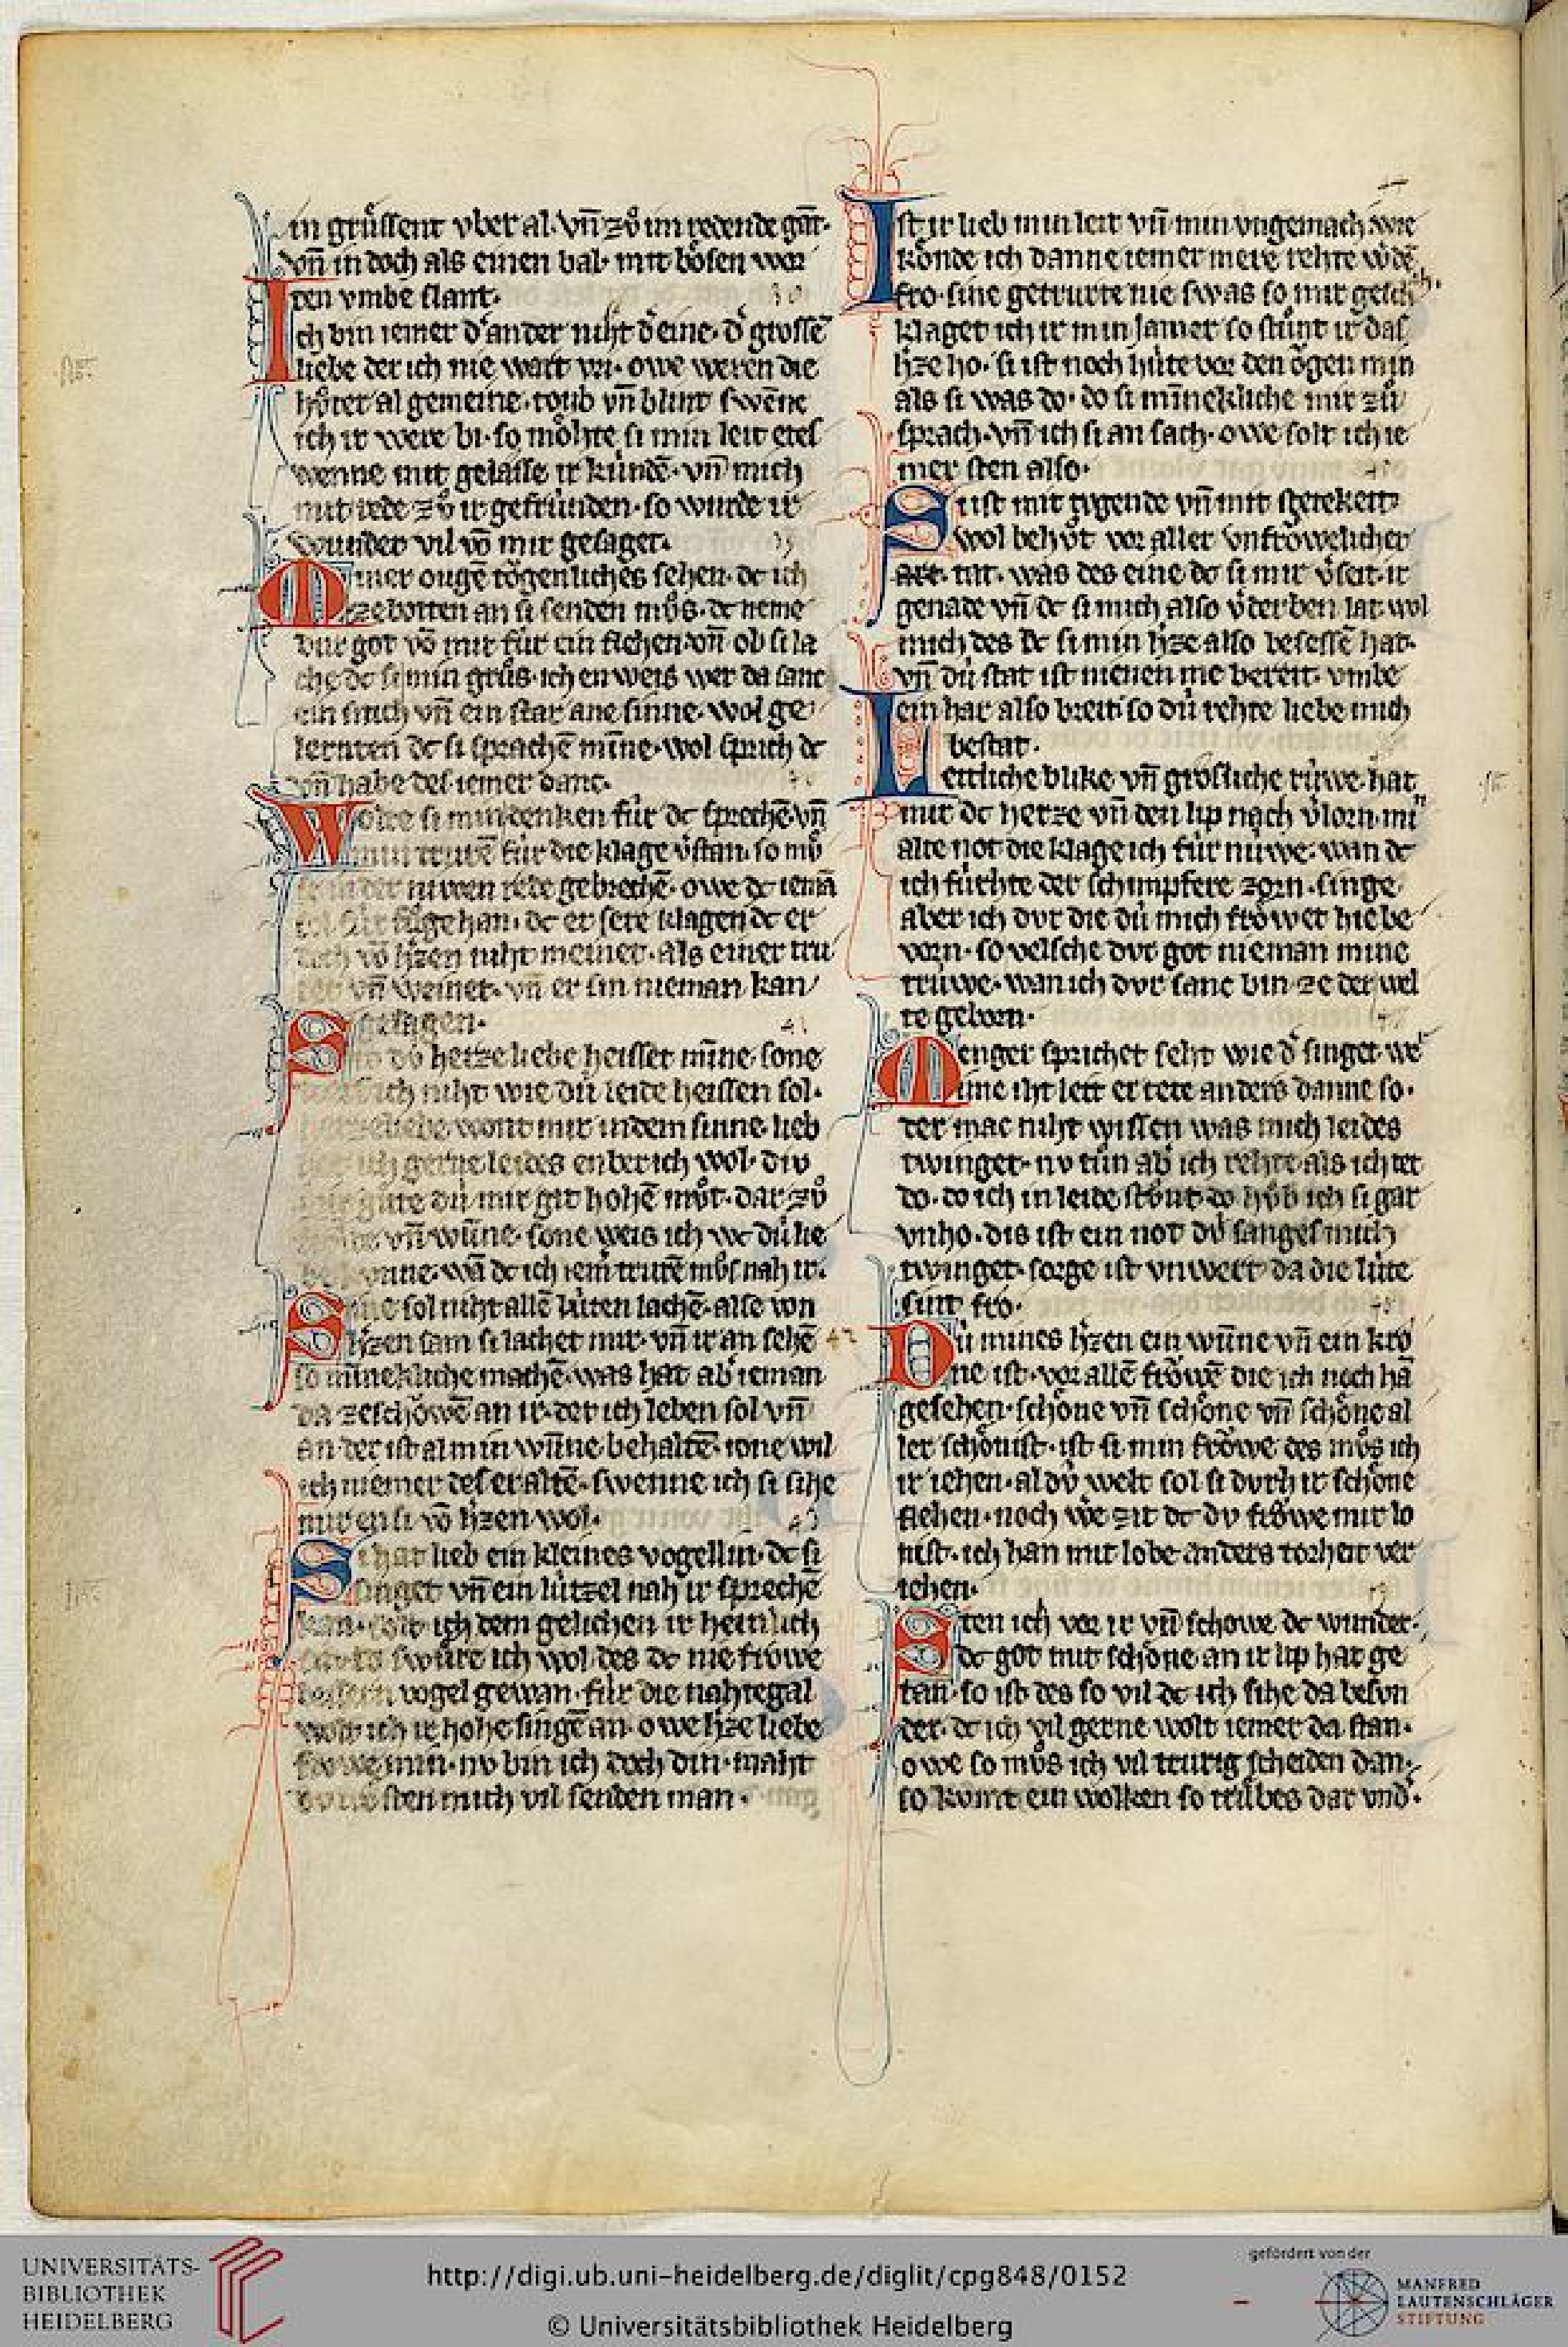 in grůssent vber al. vn̄ zů im redende gāt.
vn̄ in doch als einen bal. mit bôsen wor
ten vmbe slant.
Ich bin iemer d'ander niht d'eine. d' grossē
liebe der ich nie wart vri. owe weren die
hůter al gemeine. toub vn̄ blint swēne
ich ir were bi. so môhte si min leit etes
wenne mit gelasse ir kúndē. vn̄ mich
mit rede zů ir gefrúnden. so wurde ir
wunder vil vō mir gesaget.
Miner ougē tôgenliches sehen. dc ich
ze botten an si senden můs. dc neme
dur got vō mir fúr ein flehen. vn̄ ob si la
che dc si min grůs. ich en weis wer da sanc
ein sitich vn̄ ein star ane sinne. wol ge
lernten dc si sprachē mīne. wol sprich dc
vn̄ habe des iemer danc.
Wolte si min denken fúr dc sprechē. vn̄
min trurē fúr die klage v'stan. so mů
der niuwen rede gebrechē. owe dc iemā
sol fúr fůge han. dc er sere klagen dc er
doch vō h'zen niht meinet. als einer tru
ret vn̄ weinet. vn̄ er sin nieman kan
gesagen.
Sit dú herze liebe heisset mīne. sone
weis ich niht wie dú leide heissen sol.
herzeliebe wont mir in dem sinne. lieb
het ich gerne leides enber ich wol. div
liebe gute dú mir git hohē můt. dar zů
vn̄ wūne. sone weis ich wc dú lie
be kunne. wā dc ich iem' trurē můs nah ir.
Sine sol niht allē lúten lachē. alse von
h'zen sam si lachet mir. vn̄ ir an sehē
so mīnekliche machē. was hat ab' ieman
da ze schôwē an ir. der ich leben sol vn̄
an der ist al min wūne behaltē. ione wil
ich niemer des er altē. swenne ich si sihe
mir en si vō h'zen wol.
Si hat lieb ein kleines vogellin. dc si
singet vn̄ ein lútzel nah ir sprechē
kan. solt ich dem gelichen ir heinlich
sin. so swúre ich wol des dc nie frôwe
solhen vogel gewan. fúr die nahtegal
wolt ich ir hohe singē an. owe h'ze liebe
frowe min. nv bin ich doch din. maht
dv trôsten mich vil senden man.
Ist ir lieb min leit vn̄ min vngemach. wie
kônde ich danne iemer mere rehte w'dē
fro. sine getrurte nie swas so mir gesch
ch.
klaget ich ir min iamer so stůnt ir das
h'ze ho. si ist noch húte vor den ôgen min
als si was do. do si mīnekliche mir zů
sprach. vn̄ ich si an sach. owe solt ich ie
mer sten also.
Si ist mit tvgende vn̄ mit stetekeit
wol behůt vor aller vnfrôwelicher
tat. was des eine dc si mir v'seit. ir
genade vn̄ dc si mich also v'derben lat. wol
mich des dc si min h'ze also besessē hat.
vn̄ dú stat ist nienen me bereit. vmbe
ein har also breit. so dú rehte liebe mich
bestat.
Leitliche blike vn̄ grôsliche rúwe. hat
mir dc herze vn̄ den lip nach v'lorn. min
alte not die klage ich fúr núwe. wan dc
ich fúrhte der schimpfere zorn. singe
aber ich dvr die dú mich frôwet hie be
vorn. so velsche dvr got nieman mine
trúwe. wan ich dvr sanc bin ze der wel
te geborn.
Menger sprichet seht wie d' singet. we
re ime iht leit er tete anders danne so.
der mac niht wissen was mich leides
twinget. nv tůn ab' ich rehte als ich tet
do. do ich in leide stůnt do hůb ich si gar
vnho. dis ist ein not dv sanges mich
twinget. sorge ist vnwert da die lúte
sint fro.
Dú mines h'zen ein wūne vn̄ ein kro
ne ist. vor allē frôwē die ich noch hā
gesehen. schône vn̄ schône vn̄ schône al
ler schônist. ist si min frôwe des můs ich
ir iehen. al dv welt sol si dvrh ir schône
flehen. noch we zit dc dv frôwe mir lo
nist. ich han mit lobe anders torheit ver
iehen.
Sten ich vor ir vn̄ schowe dc wunder.
dc got mit schône an ir lip hat ge
tan. so ist des so vil dc ich sihe da besvn
der. dc ich vil gerne wolt iemer da stan.
owe so můs ich vil trurig scheiden dan.
so kvmt ein wolken so trúbes dar vnd'.
UNIVERSITÄTS-
BIBLIOTHEK
HEIDELBERG
http://digi.ub.uni-heidelberg.de/diglit/cpg848/0152
© Universitätsbibliothek Heidelberg
gefördert von der
MANFRED
LAUTENSCHLÄGER
STIFTUNG